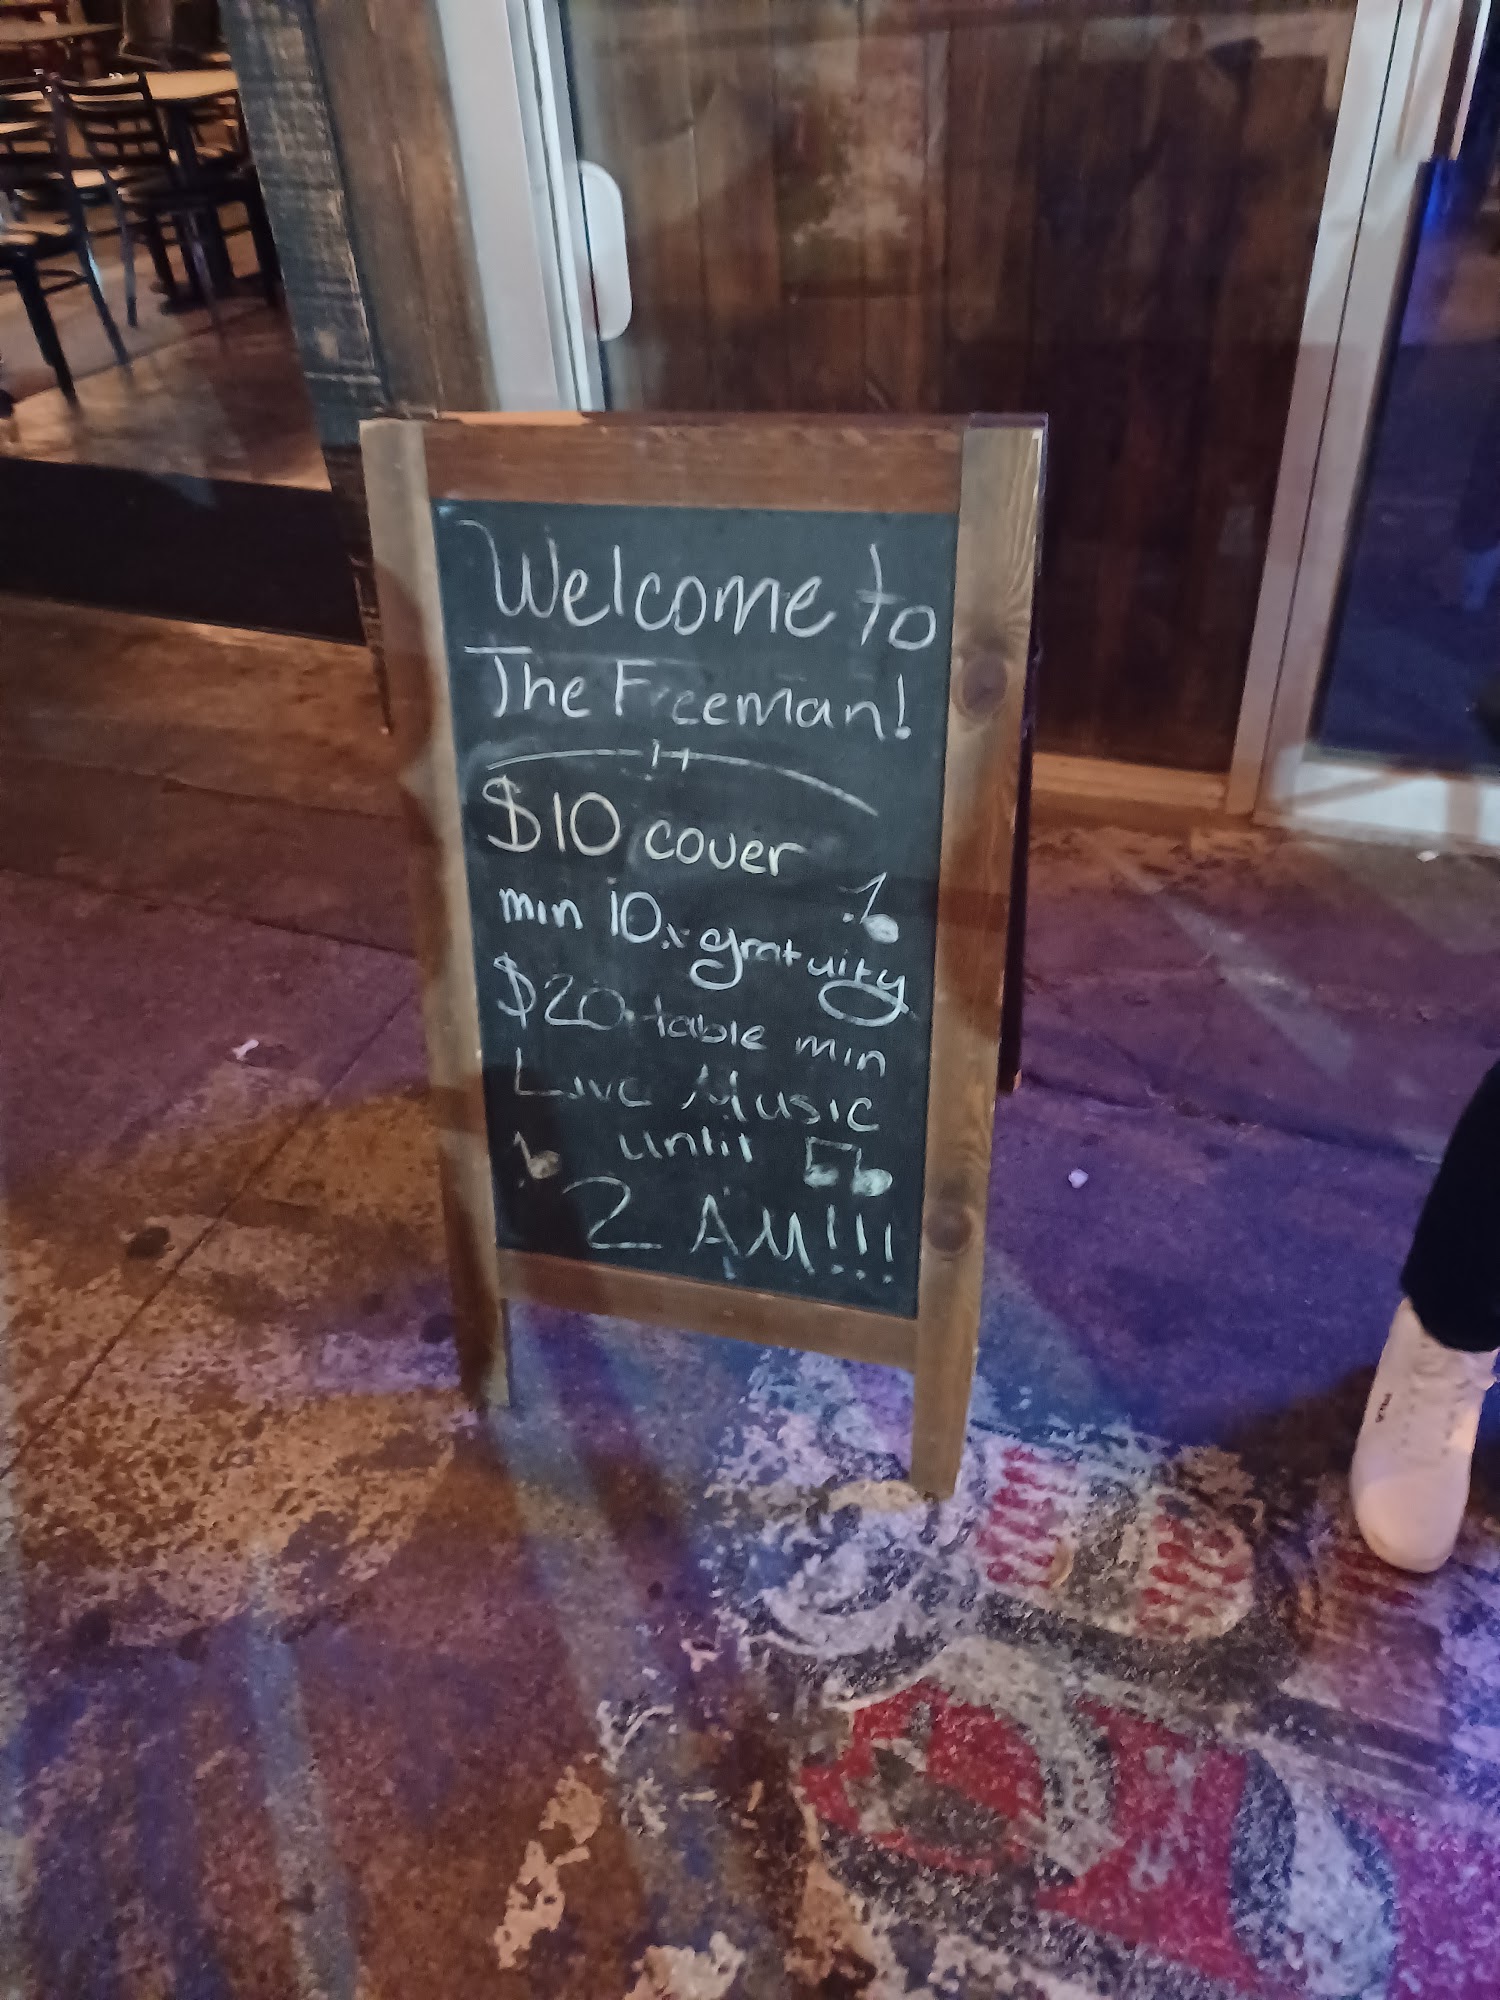 Welcome to
The Freeman!
$10 cover
min 10% gratuity
$20 table min
Live Music
until
2 AM!!!
FILA